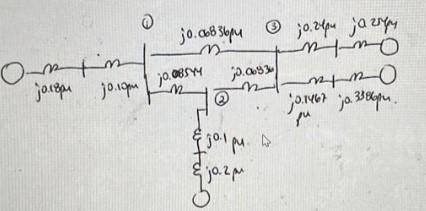 ①
j0.06836pu
③
j0.24pu
j0.18pu
j0.10pu
j0.08544
②
j0.06836
j0.1467
pu
j0.3386pu.
j0.1 pu
j0.2 pu